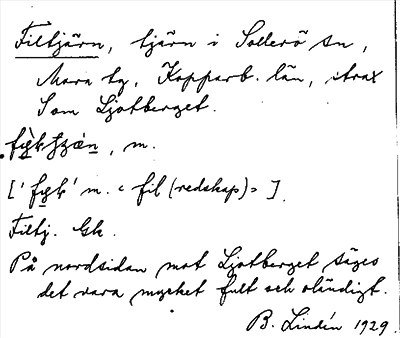 Filtjärn, tjärn i Sollerö sn,
Mora tg, Kopparb. län, strax
Som Ljotberget.
, m.
[' ' m. < fil (redskap) > ]
Filtj. Gk.
På nordsidan mot Ljotberget säges
det vara mycket fult och oländigt.
B. Lindén 1929.